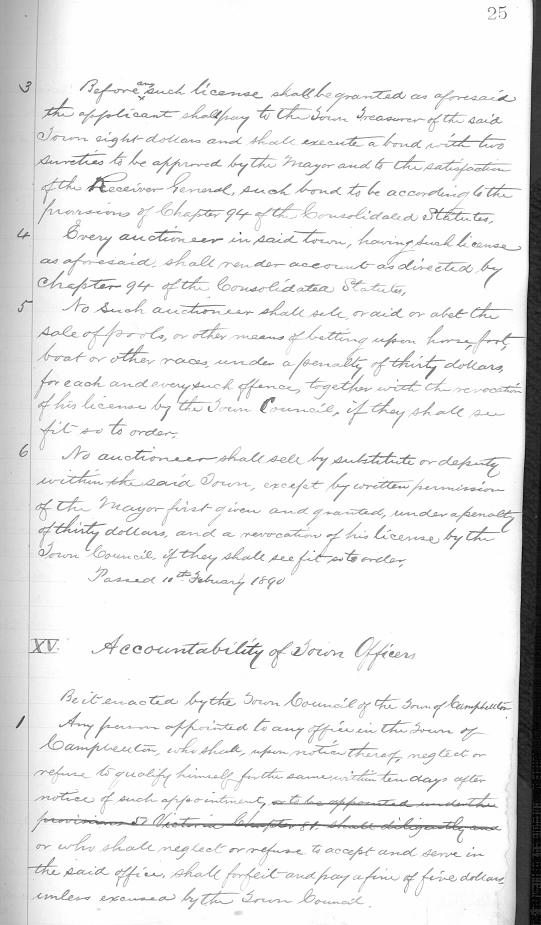 25
3 Before any such license shall be granted as aforesaid
the applicant shall pay to the Town Treasurer of the said
Town eight dollars and shall execute a bond with two
sureties to be approved by the Mayor and to the satisfaction
of the Receiver General, such bond to be according to the
provisions of Chapter 94 of the Consolidated Statutes.
4 Every auctioneer in said town, having such license
as aforesaid, shall render account as directed by
Chapter 94 of the Consolidated Statutes.
5 No such auctioneer shall sell, or aid or abet the
sale of pools, or other means of betting upon horse, foot,
boat or other races, under a penalty of thirty dollars,
for each and every such offence, together with the revocation
of his license by the Town Council, if they shall see
fit so to order.
6 No auctioneer shall sell by substitute or deputy
within the said Town, except by written permission
of the Mayor first given and granted, under a penalty
of thirty dollars, and a revocation of his license by the
Town Council, if they shall see fit so to order.
Passed 10th Febuary 1890
XV. Accountability of Town Officers
Be it enacted by the Town Council of the Town of Campbellton
1 Any person appointed to any office in the Town of
Campbellton, who shall, upon notice thereof, neglect or
refuse to qualify himself for the same within ten days after
notice of such appointment, or to be appointed under the
provisions 52 Victoria Chapter 81. shall diligently and
or who shall neglect or refuse to accept and serve in
the said office, shall forfeit and pay a fine of five dollars,
unless excused by the Town Council.